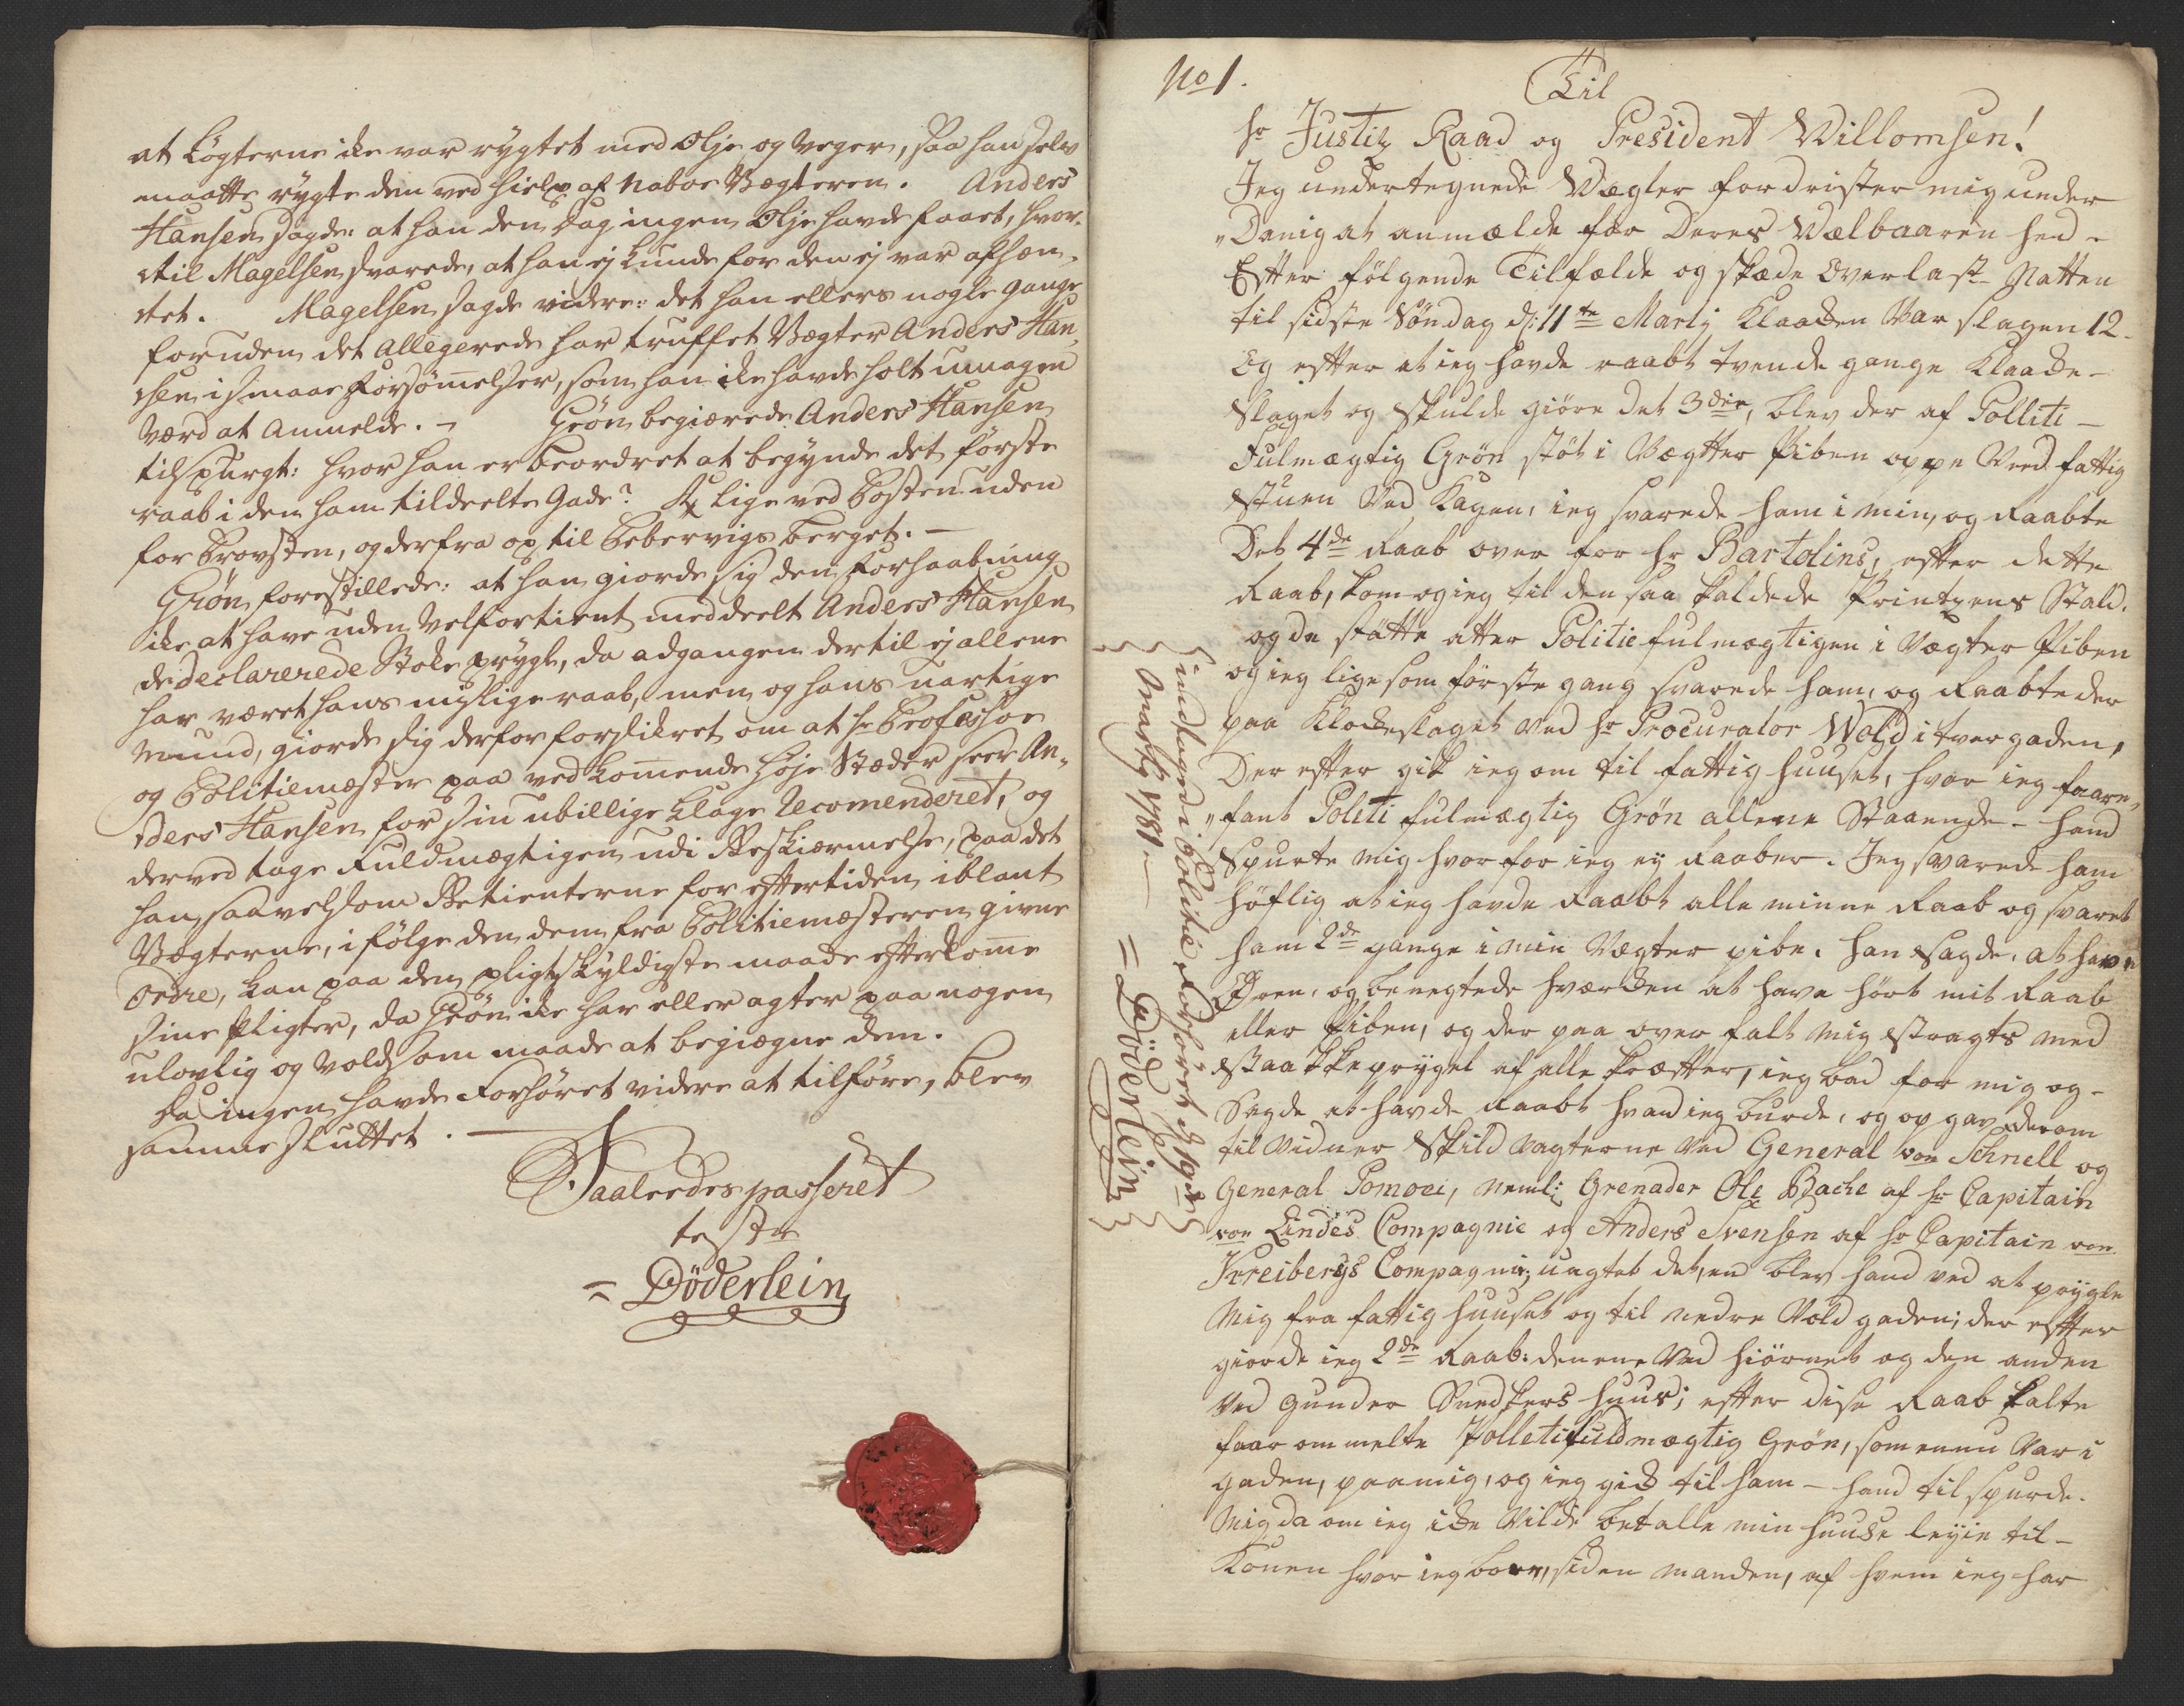 at Løgterne ike var rygtet med Olje og Veger, saa han selv
maatte rygte dem ved hielp af Naboe Vægteren. Anders
Hansen sagde: at han den Dag ingen Olje havde faaet, hvor-
til Magelsen svarede, at han ej kunde for den ej var afhen-
tet. Magelsen sagde videre: det han ellers nogle gange
foruden det allegerede har truffet Vægter Anders Han-
sen i smaae Forsømelser, som han ike havde holt umagen
værd at Anmelde. - Grøn begiærede Anders Hansen
tilspurgt: hvor han er beordret at begynde det første
raab i den ham tildeelte Gade? Rx lige ved Posten uden
for Provsten, og derfra op til Pebervigs berget. -
Grøn forestillede: at han giorde sig den Forhaabning
ike at have uden Velfortient meddeelt Anders Hansen
de declarerede Stoke prygl, da adgangen dertil ej allene
har været hans urigtige raab, men og hans uartige
Mund, giorde sig derfor forsikret om at hr Professor
og Politiemester paa vedkomende høje Stæder seer An-
ders Hansen for sin ubillige Klage Recomenderet, og
derved tage Fuldmægtigen udi Beskiærmelse, paa det
han saavelsom Betienterne for eftertiden iblant
Vægterne, i følge den dem fra Politiemesteren givne
Ordre, kan paa den pligtskyldigste maade efterkome
sine Pligter, da Grøn ike har eller agter paa nogen
ulovlig og voldsom maade at begiegne dem.
Da ingen havde Forhøret videre at tilføre, blev
samme sluttet. -
Saaleedes passeret
teste
= Döderlein
No 1.
Til
hr Justitz Raad og President Willomsen!
Jeg undertegnede Vægter fordrister mig under
„Danig at anmælde for Deres Velbaarenhed -
Efter følgende Tilfælde og skede Overlast Natten
til sidste Søndag d: 11te Martij Klokken Var slagen 12 -
Og efter at ieg havde raabt tvende gange Klokke -
Slaget og skulde giøre det 3die, blev der af Politi -
Fulmægtig Grøn støt i Vægter Piben oppe Ved fattig
stuen Ved Kagen, ieg svarede ham i min, og Raabte
Det 4de Raab over for hr Bartolins, efter dette
Raab, kom og ieg til den saa kaldede Printzens Stald.
og da støtte atter Politiefulmægtigen i Vægter Piben
og ieg ligesom første gang svarede ham, og Raabte der
paa Klokkeslaget Ved hr Procurator Wold i tvergaden,
Der efter gik ieg om til fattig huuset, hvor ieg foran„
„fant Politi fulmægtig Grøn allene Staaende - hand
Spurte mig hvor for ieg ey Raaber. Jeg svarede ham
høflig at ieg havde Raabt alle mine Raab og svaret
ham 2de gange i min Vægter pibe. han sagde, at have
Ørren, og benegtede hværken at have hørt mit Raab
eller Piben, og der paa over falt mig stragts med
staakkeprygel af alle kræfter, ieg bad for mig og -
Sagde at havde Raabt hvad ieg burde, og op gav derom
til Vidner Skildvagterne Ved General von Schnell og
General Pomoei, neml: Grenader Ole Bache af hr Capitain
von Lindes Compagnie og Anders Svensen af hr Capitain von
Kreibergs Compagnie; uagtet det, end blev hand ved at prygle
Mig fra fattig huuset og til nedre Voldgaden; der efter
giorde ieg 2de Raab: den ene Ved hiørnet og den anden
Ved gunder Snedkers huus; efter dise Raab kalte
foor ommelte Polletifuldmægtig Grøn, som ennu Var i
gaden, paa mig, og ieg gik til ham - hand til spurde
Mig da om ieg ike Vilde betalle min huuse leyie til -
Konen hvor ieg boer, siden manden, af hvem ieg har
indlagd i Politie Forhøret d 19de
Marty 1781 - = Döderlein